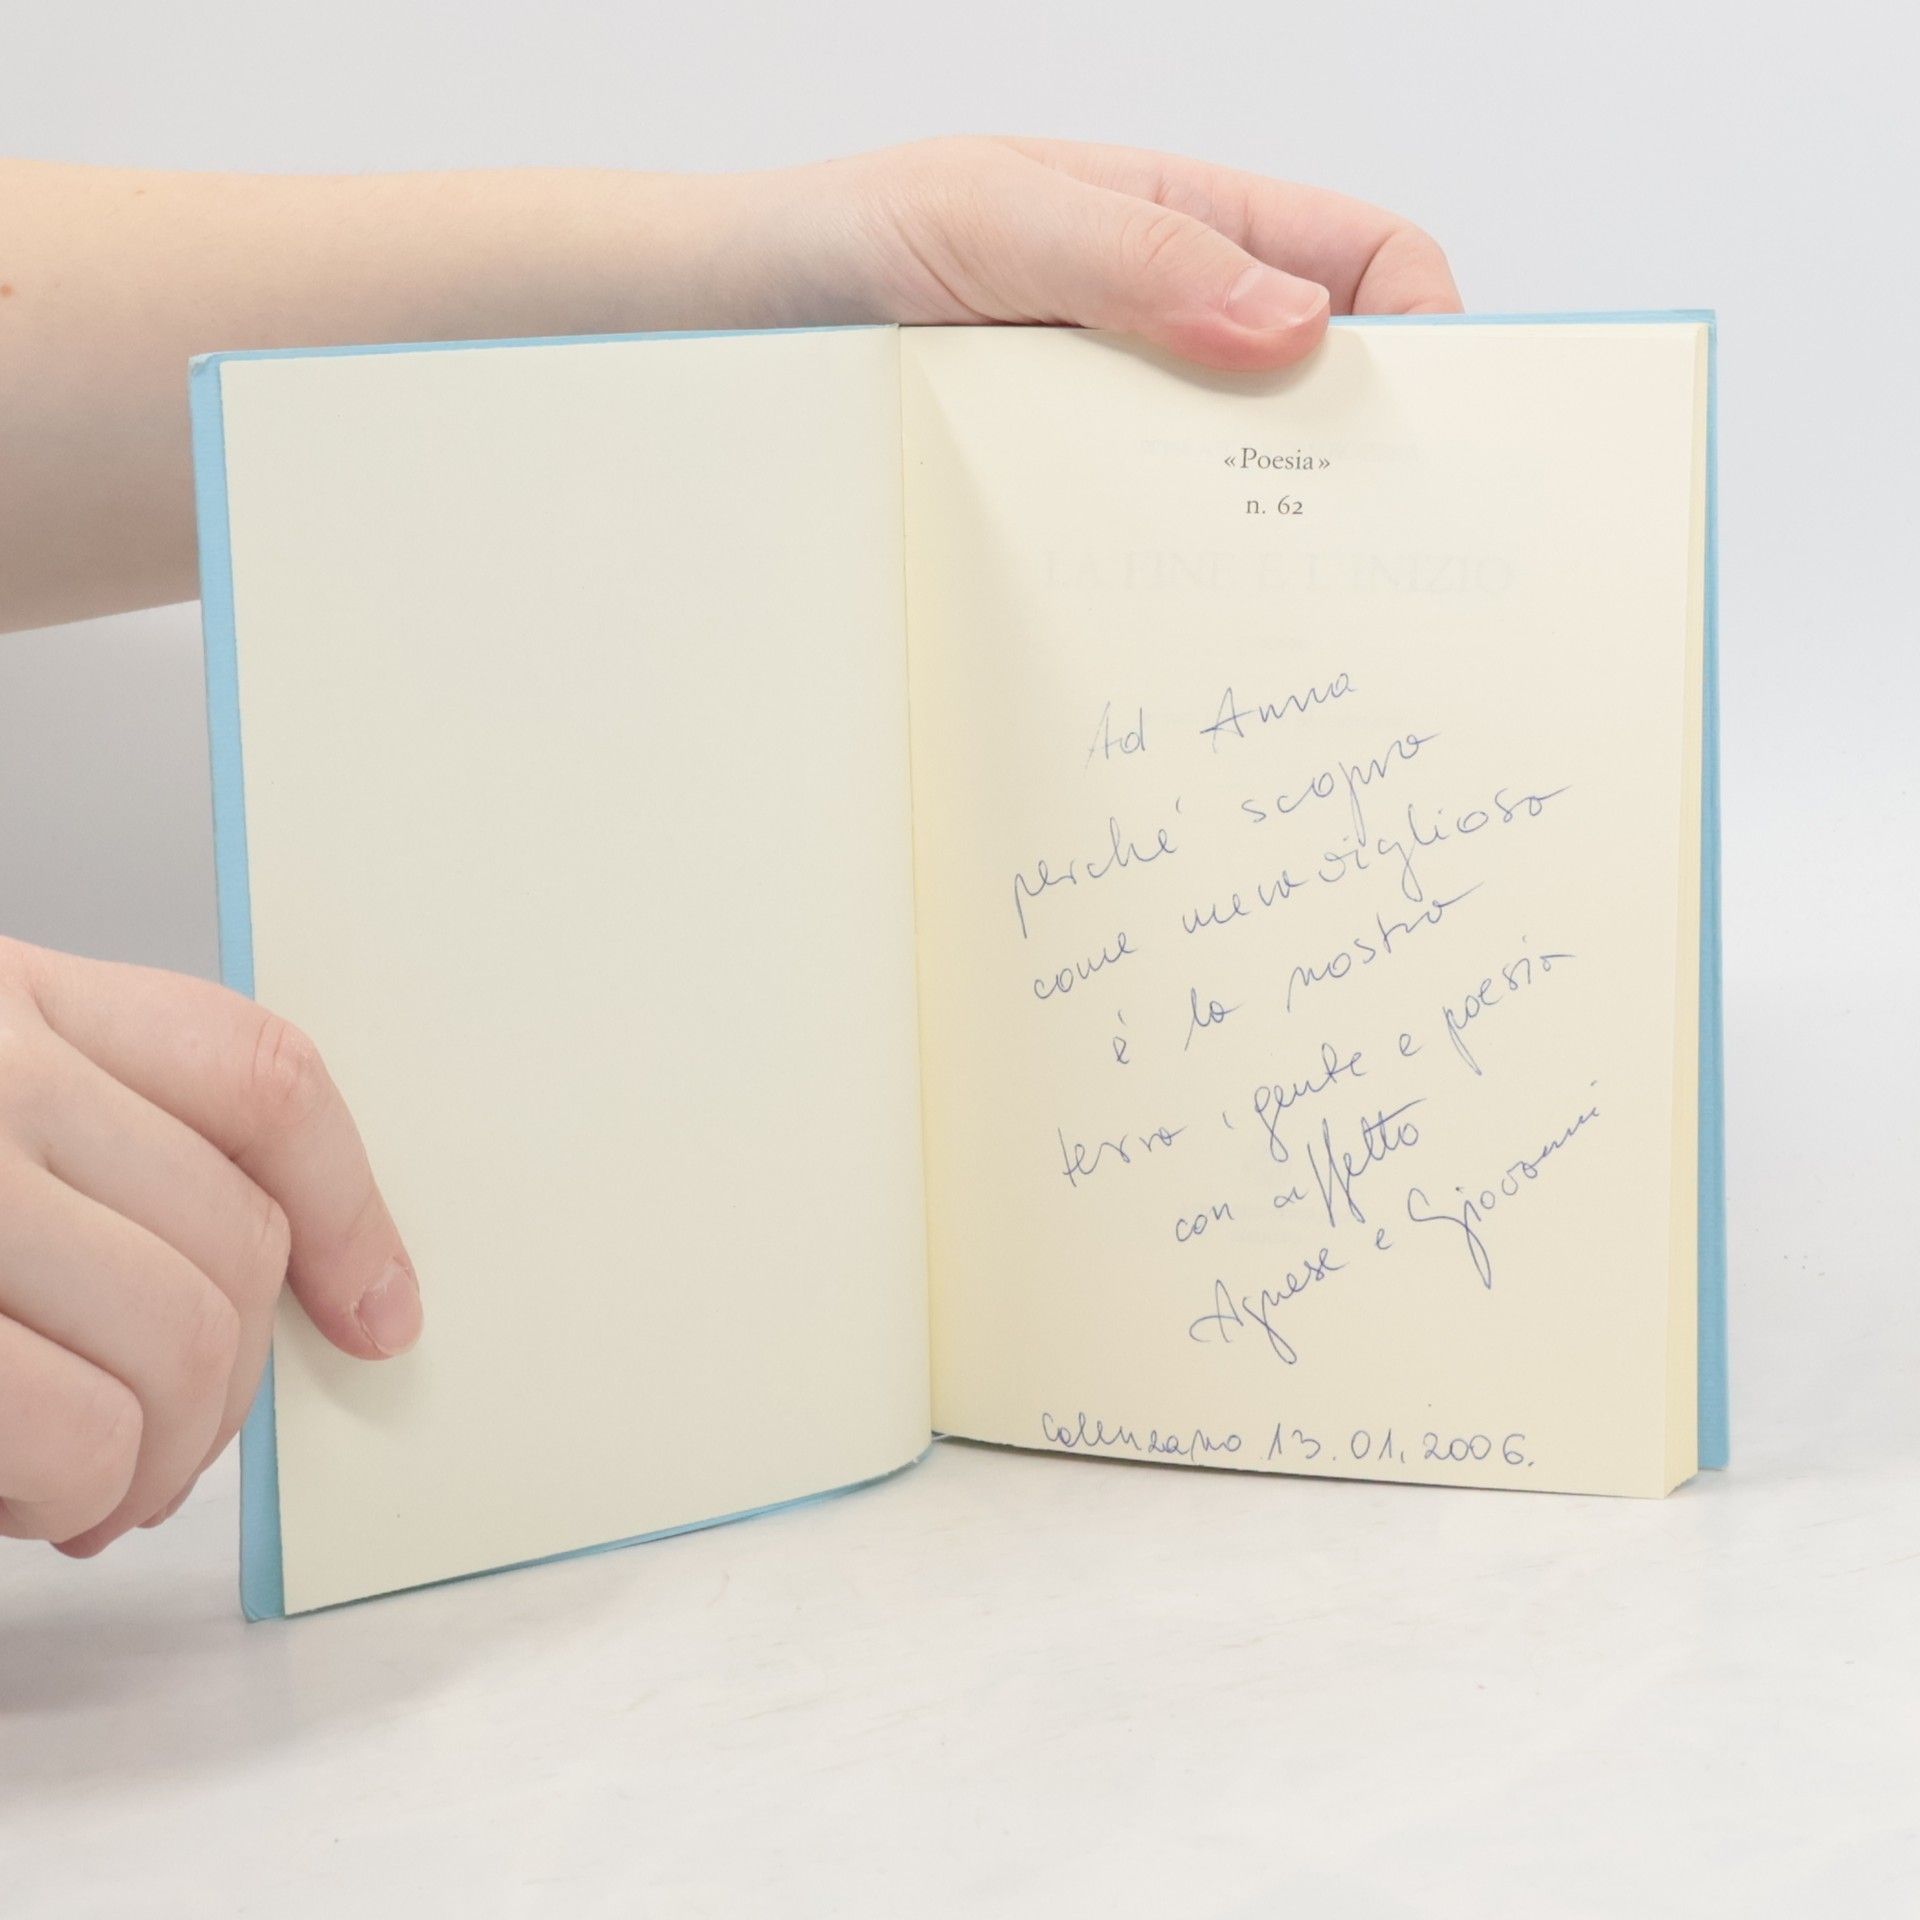 «Poesia»
n. 62
LA FINE E L'INIZIO
Ad Anna
perché scopra
come meravigliosa
è la nostra
terra, gente e poesia
con affetto
Agnese e Giovanni
Calenzano 13.01.2006.